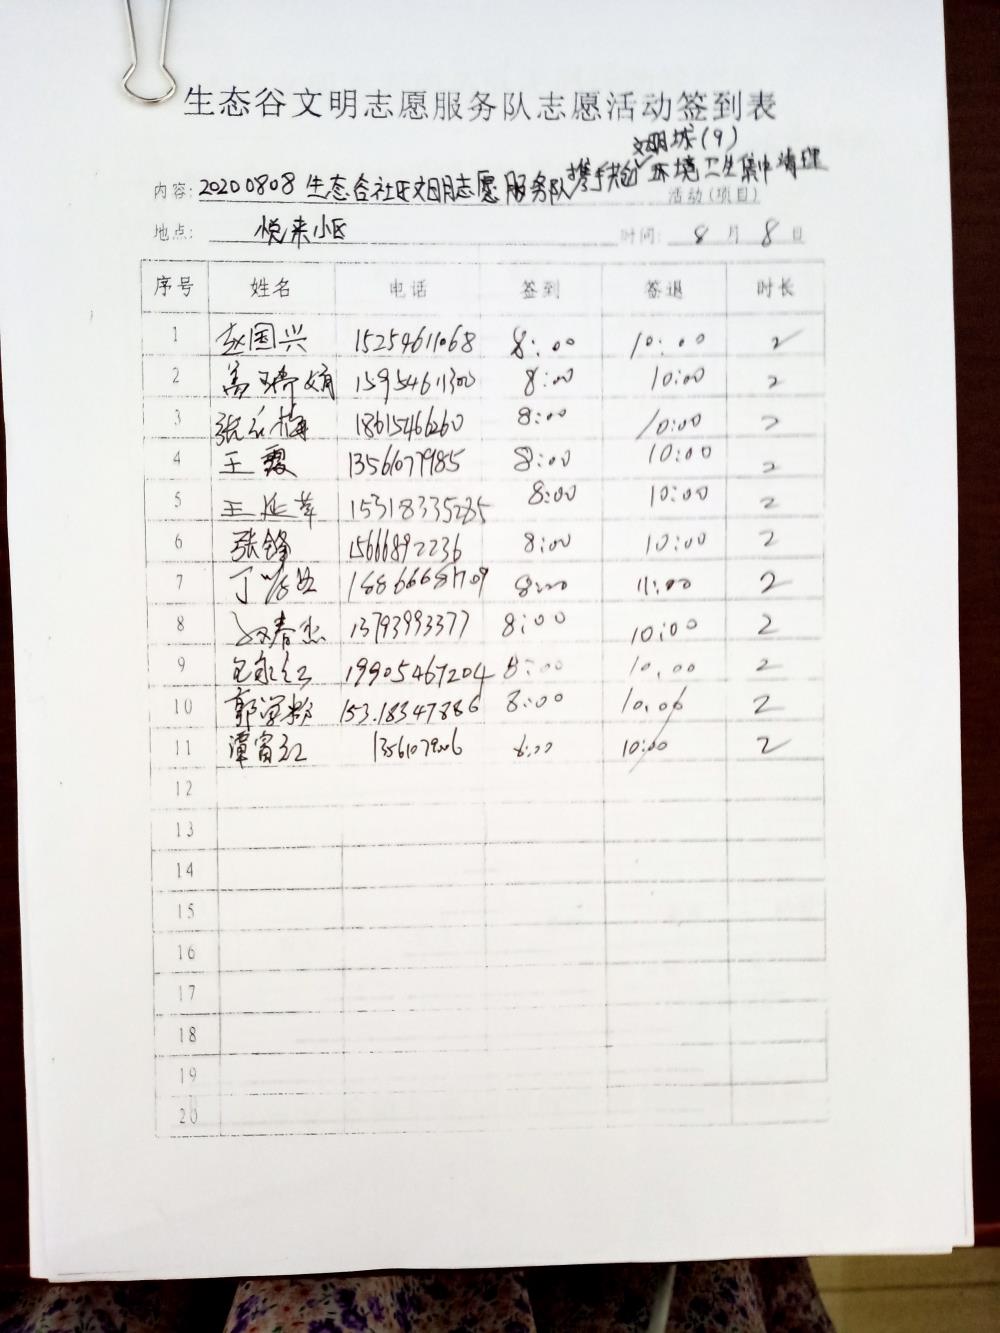 生态谷文明志愿服务队志愿活动签到表
文明城(9)
内容: 20200808生态谷社区文明志愿服务队携手共创环境卫生集中清理
活动(项目)
地点: 悦来小区 时间: 8月8日
序号 姓名 电话 签到 签退 时长
1 赵国兴 15254611068 8:00 10:00 2
2 盖瑞娟 15954611300 8:00 10:00 2
3 张梅 18615466260 8:00 10:00 2
4 王霞 13561077985 8:00 10:00 2
5 王延苹 15318335285 8:00 10:00 2
6 张锋 15666892236 8:00 10:00 2
7 丁 8:00 11:00 2
8 赵春杰 13793993377 8:00 10:00 2
9 19905467204 8:00 10:00 2
10 郭学彬 15318347886 8:00 10:06 2
11 谭富江 8:00 10:00 2
12
13
14
15
16
17
18
19
20